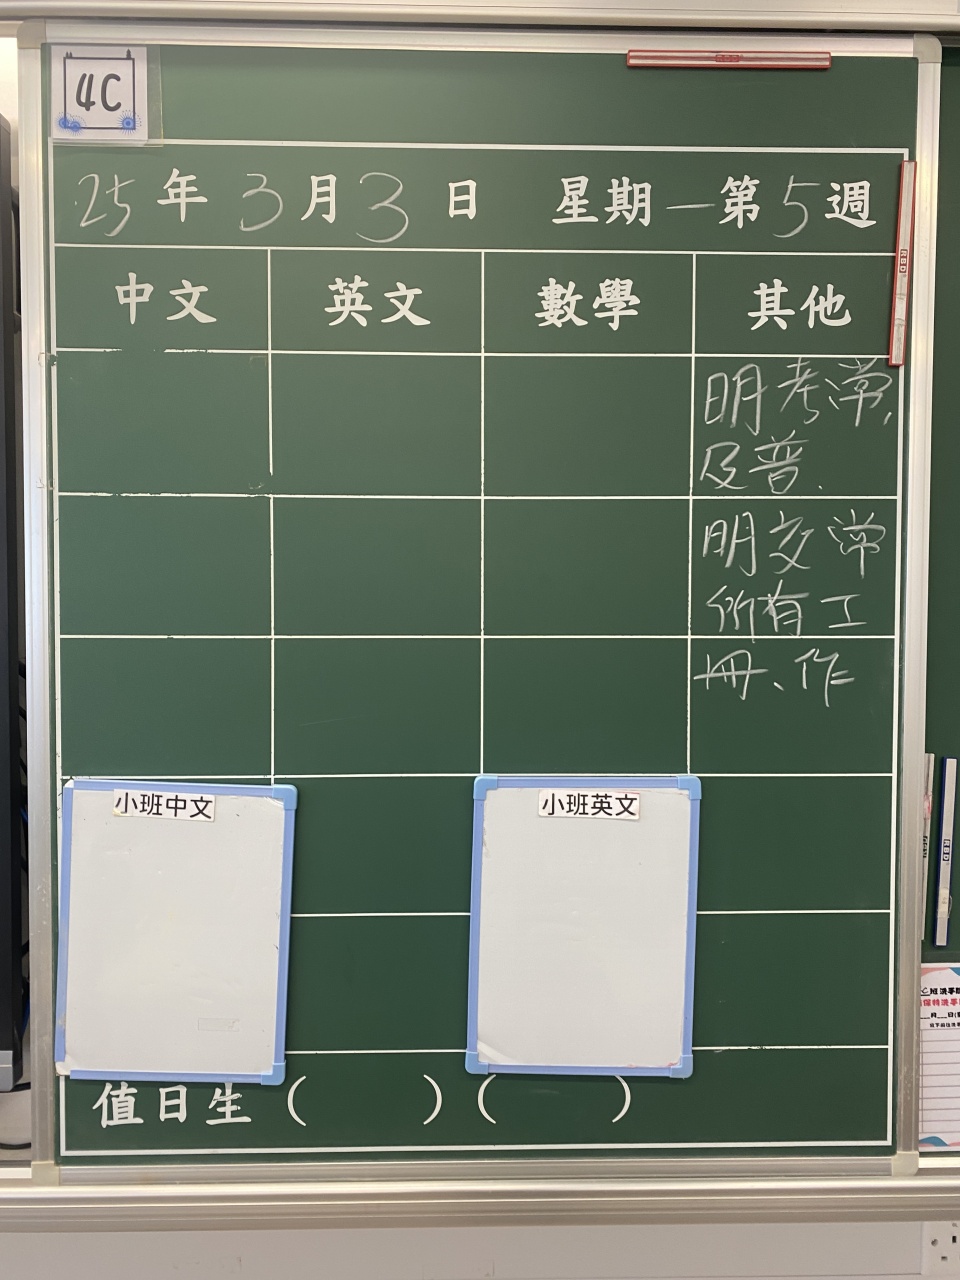 4C
25年3月3日 星期一第5週
中文 英文 數學 其他
明考常,
及普.
明交常
所有工
冊、作
小班中文
小班英文
值日生( )( )